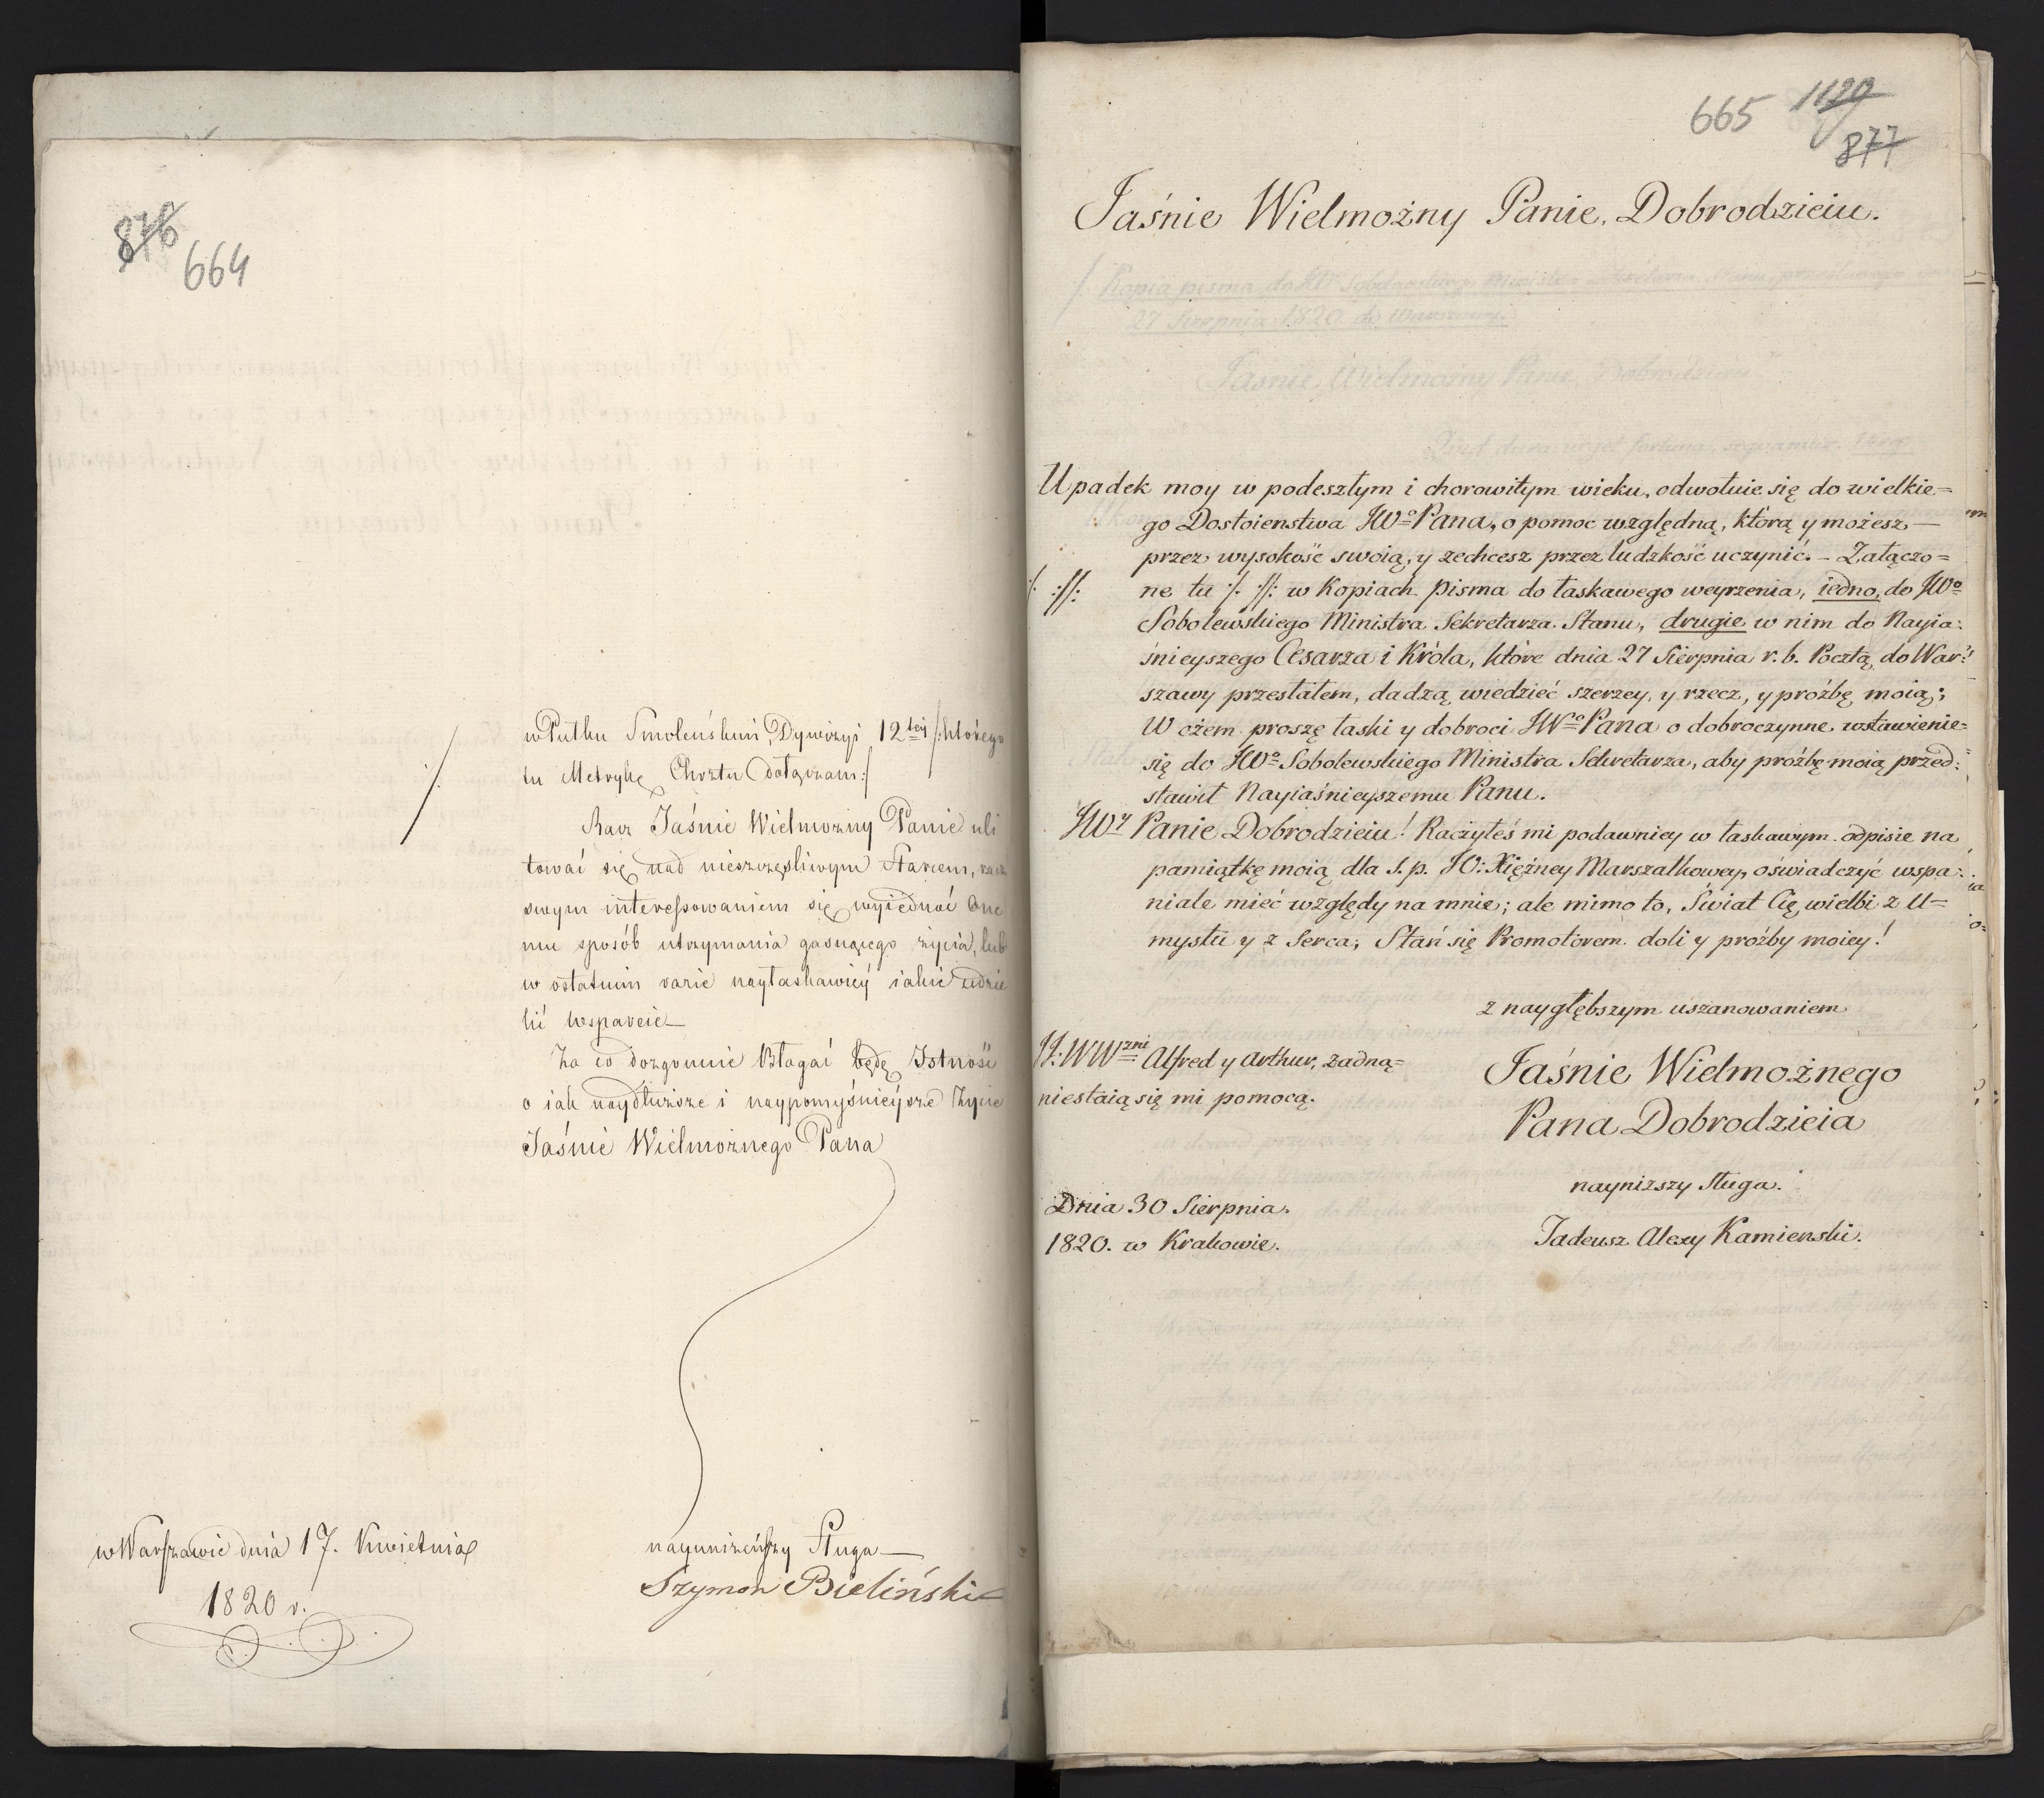 876
664
w Pułku Smoleńskim, Dywizyi 12tey /: którego
tu Metrykę Chrztu dołączam :/
Racz Jaśnie Wielmożny Panie uli
tować się nad nieszczęśliwym Starcem, racz
swym interessowaniem się wyiednać One
mu sposób utrzymania gasnącego życia, lub
w ostatnim razie nayłaskawiéy iakie udzie
lić wsparcie
Za co dozgonnie Błagać będę Istność
o iak naydłuższe i naypomyśnieysze życie
Jaśnie Wielmożnego Pana
w Warszawie dnia 17. Kwietnia
1820 r.
nayuniżeńszy Sługa
Szymon Bieliński
665 1120
877
Jaśnie Wielmożny Panie, Dobrodzieiu.
Upadek moy w podeszłym i chorowitym wieku, odwołuie się do wielkie=
go Dostoienstwa JWo Pana, o pomoc względną, którą y możesz —
przez wysokość swoią, y zechcesz przez ludzkość uczynić. – Załączo=
/. ://:
ne tu /. //: w Kopiach pisma do łaskawego weyrzenia, iedno, do JWo
Sobolewskiego Ministra Sekretarza Stanu, drugie w nim do Nayia:
śnieyszego Cesarza i Króla, które dnia 27 Sierpnia r. b. Pocztą do War:
szawy przesłałem, dadzą wiedzieć szerzey, y rzecz, y proźbę moią;
W czem proszę łaski y dobroci JWo Pana o dobroczynne wstawienie=
się do JWo Sobolewskiego Ministra Sekretarza, aby proźbę moią przed:
stawił Nayiaśnieyszemu Panu.
JWy Panie Dobrodzieiu! Raczyłeś mi podawniey w łaskawym odpisie na
pamiątkę moią dla ś. p. JO: Xiężney Marszałkowey, oświadczyć wspa:
niale mieć względy na mnie; ale mimo to, Świat Cię wielbi z U=
mysłu y z Serca; Stań się Promotorem doli y proźby moiey!
z naygłębszym uszanowaniem
JJ: WWzni Alfred y Arthur, żadną=
niestaią się mi pomocą.
Jaśnie Wielmożnego
Pana Dobrodzieia
nayniższy Sługa.
Tadeusz Alexy Kamienski.
Dnia 30 Sierpnia
1820. w Krakowie.